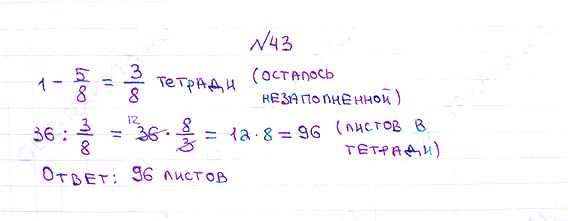 №43
1 - 5/8 = 3/8 тетради (осталось
незаполненной)
36 : 3/8 = 36 12 · 8/3 = 12 · 8 = 96 (листов в
тетради)
Ответ: 96 листов